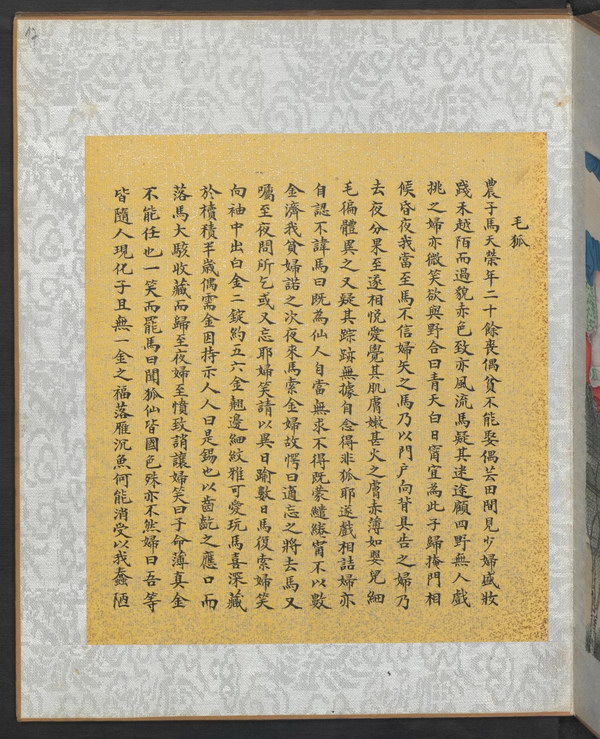 毛狐
農子馬天榮年二十餘喪偶貧不能娶偶芸田間見少婦盛妝
踐禾越陌而過貌赤色致亦風流馬疑其迷途顧四野無人戲
挑之婦亦微笑欲與野合曰青天白日甯宜為此子歸掩門相
候昏夜我當至馬不信婦矢之馬乃以門戶向背具告之婦乃
去夜分果至遂相悅愛覺其肌膚嫩甚火之膚赤薄如嬰兒細
毛徧體異之又疑其踪跡無據自念得非狐耶遂戲相詰婦亦
自認不諱馬曰既為仙人自當無求不得既蒙繾綣甯不以數
金濟我貧婦諾之次夜來馬索金婦故愕曰適忘之將去馬又
囑至夜問所乞或又忘耶婦笑請以異日踰數日馬復索婦笑
向袖中出白金二錠約五六金翹邊細紋雅可愛玩馬喜深藏
於櫝積半歲偶需金因持示人人曰是錫也以齒齕之應口而
落馬大駭收藏而歸至夜婦至憤致誚讓婦笑曰子命薄真金
不能任也一笑而罷馬曰聞狐仙皆國色殊亦不然婦曰吾等
皆隨人現化子且無一金之福落雁沉魚何能消受以我蠢陋